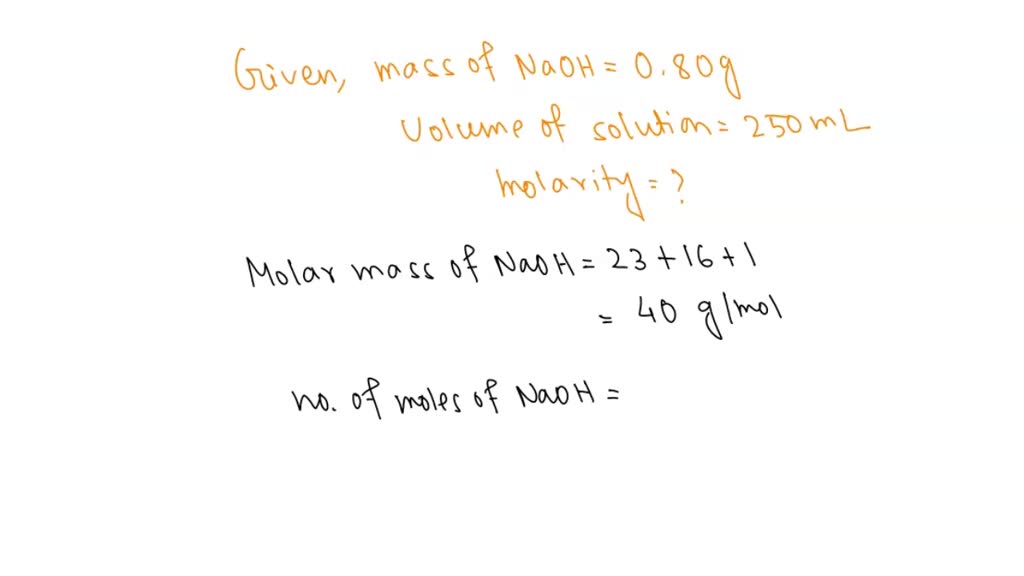 Given, mass of NaOH = 0.80g
Volume of solution = 250 mL
molarity = ?
Molar mass of NaOH = 23 + 16 + 1
= 40 g/mol
no. of moles of NaOH =